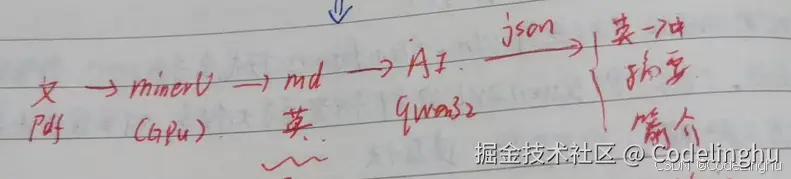 文 → minerU → md → AI json → 英→中
Pdf (GPU) 英 qwen32 摘要
简介
掘金技术社区 @ Codelinghu
CSDN @Codelinghu